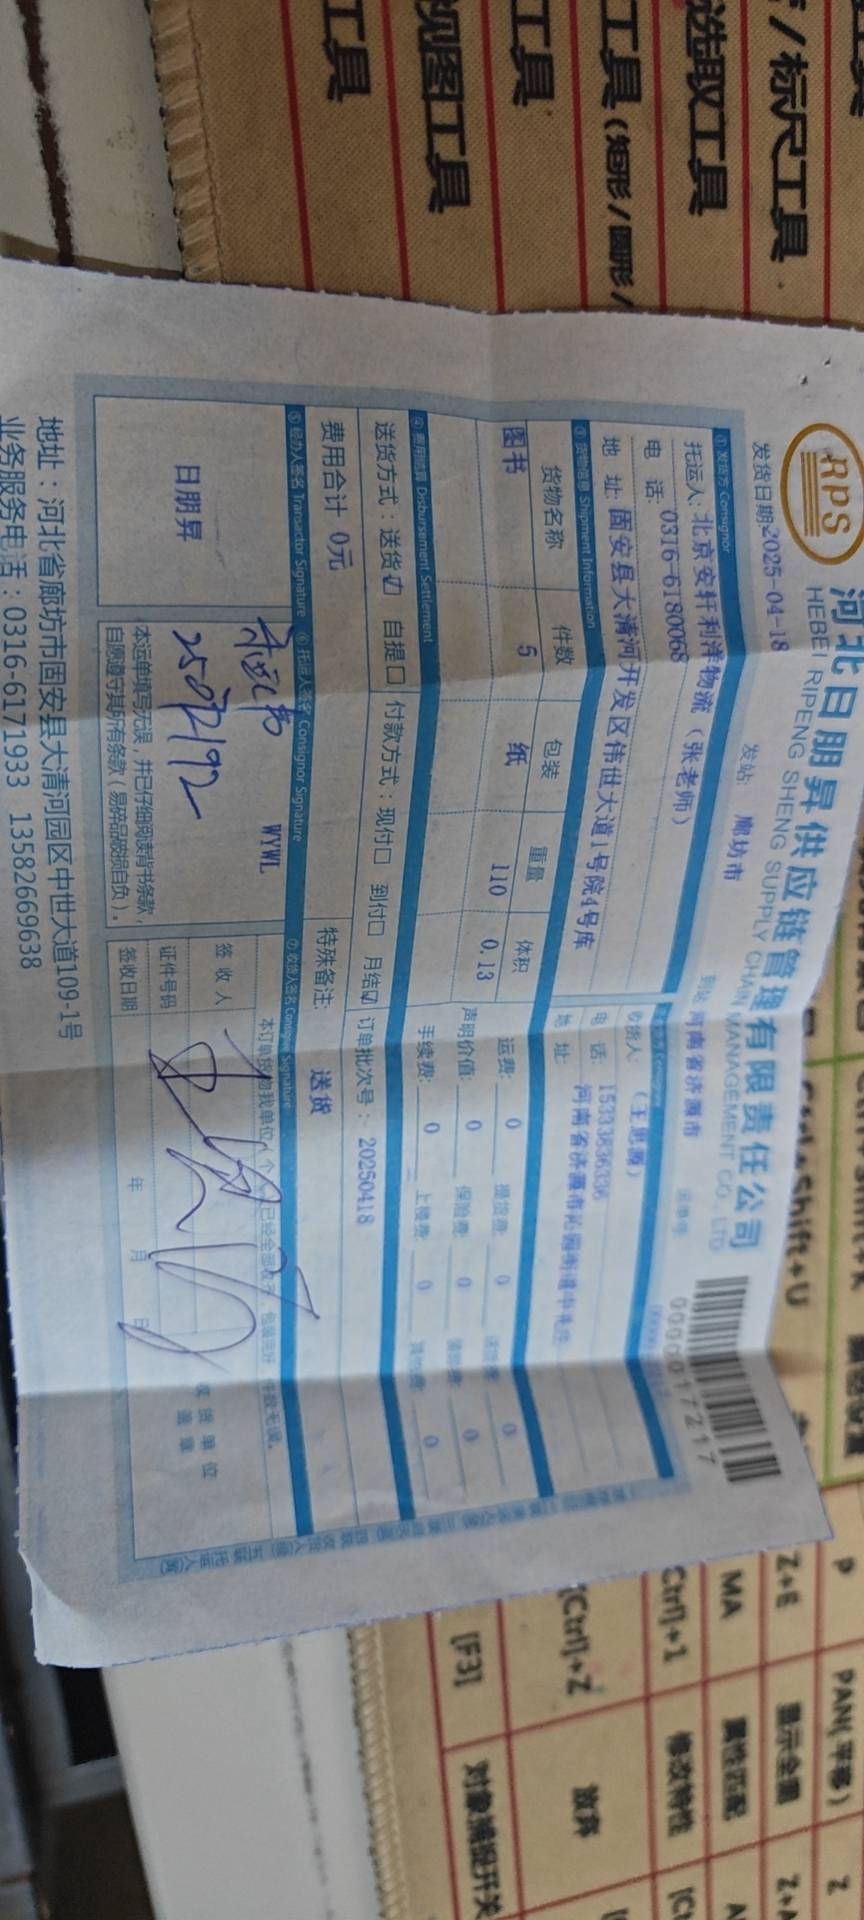 RPS
河北日朋昇供应链管理有限责任公司
HEBEI RIPENG SHENG SUPPLY CHAIN MANAGEMENT CO., LTD
0000017217
发货日期:2025-04-18 发站: 廊坊市 到站:河南省济源市 运单号:
① 发货方 Consignor
托运人: 北京安轩利洋物流 (张老师)
收货人: (王思源)
电 话: 0316-6180068
电 话: 15333836336
地 址: 固安县大清河开发区伟世大道1号院4号库
地 址: 河南省济源市沁园街道中
③ 货物信息 Shipment Information
货物名称 件数 包装 重量 体积
图书 5 纸 110 0.13
运费: 0 提货费: 0 送货费: 0
声明价值: 0 保险费: 0 装卸费: 0
手续费: 0 上楼费: 0 其他费: 0
④ 费用结算 Disbursement Settlement
送货方式:送货☑ 自提☐ 付款方式:现付☐ 到付☐ 月结☑ 订单批次号: 20250418
费用合计 0元 特殊备注: 送货
⑤ 经办人签名 Transactor Signature ⑥ 托运人签名 Consignor Signature ⑦ 收货人签名 Consignee Signature
日朋昇
WYWL
本运单填写无误,并已仔细阅读背书条款,
自愿遵守其所有条款(易碎品破损自负)。
本订单货物我单位(个人)已经全部收齐,包装完好,件数无误。
签 收 人
证件号码
签收日期 年 月 日
收货单位
盖 章
地址:河北省廊坊市固安县大清河园区中世大道109-1号
业务服务电话:0316-6171933 13582669638
工具
视图工具
工具
工具(矩形/圆形/
选取工具
/标尺工具
Ctrl+Shift+U
P PAN(平移) Z
Z+E 显示全图 Z+A
MA 属性匹配
Ctrl+1 修改特性
[Ctrl]+Z 放弃
[F3] 对象捕捉开关